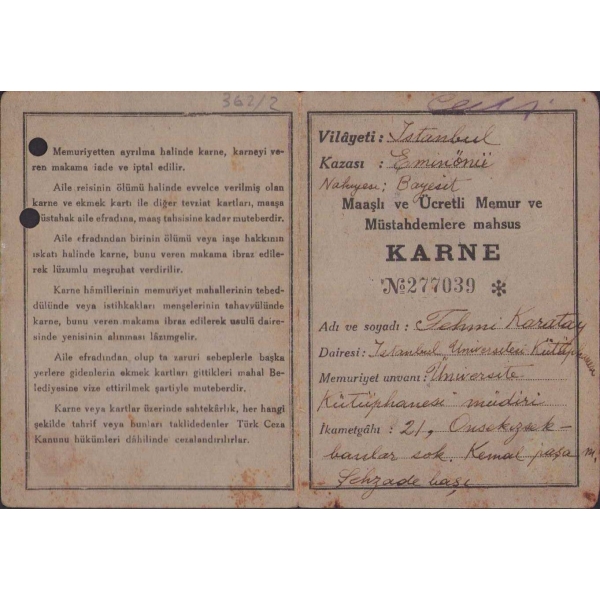 362/2
Memuriyetten ayrılma halinde karne, karneyi ve-
ren makama iade ve iptal edilir.
Aile reisinin ölümü halinde evvelce verilmiş olan
karne ve ekmek kartı ile diğer tevziat kartları, maaşa
müstahak aile efradına, maaş tahsisine kadar muteberdir.
Aile efradından birinin ölümü veya iaşe hakkının
ıskatı halinde karne, bunu veren makama ibraz edile-
rek lüzumlu meşruhat verdirilir.
Karne hâmillerinin memuriyet mahallerinin tebed-
dülünde veya istihkakları menşelerinin tahavvülünde
karne, bunu veren makama ibraz edilerek usulü daire-
sinde yenisinin alınması lâzımgelir.
Aile efradından, olup ta zaruri sebeplerle başka
yerlere gidenlerin ekmek kartları gittikleri mahal Be-
lediyesine vize ettirilmek şartiyle muteberdir.
Karne veya kartlar üzerinde sahtekârlık, her hangi
şekilde tahrif veya bunları taklidedenler Türk Ceza
Kanunu hükümleri dâhilinde cezalandırılırlar.
Vilâyeti : İstanbul
Kazası : Eminönü
Nahiyesi : Bayezit
Maaşlı ve Ücretli Memur ve
Müstahdemlere mahsus
KARNE
№ 277039 *
Adı ve soyadı : Fehmi Karatay
Dairesi : İstanbul Üniversitesi Kütüphanesi
Memuriyet unvanı : Üniversite
Kütüphanesi müdiri
İkametgâhı : 21, Onsekizsek-
banlar sok. Kemal paşa m.
Şehzade başı